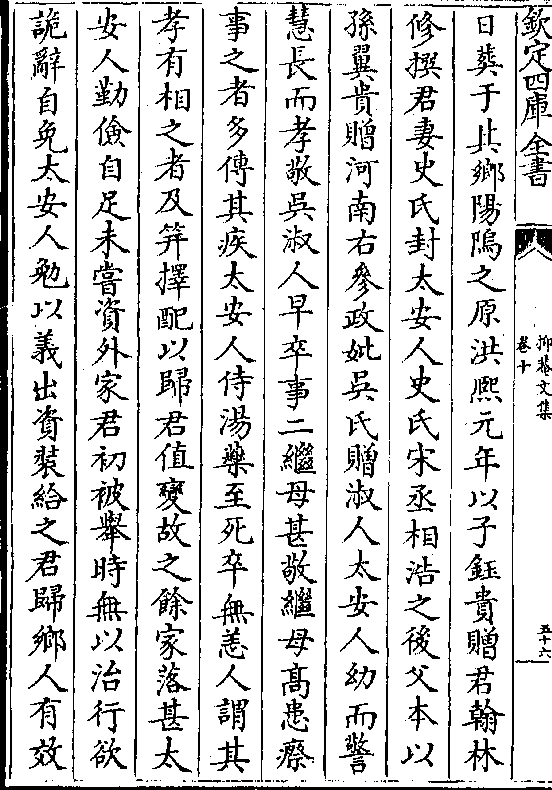 欽定四庫全書
抑菴文集
卷十
五十六
日葬于其鄉陽隖之原洪熈元年以子鈺貴贈君翰林
修撰君妻史氏封太安人史氏宋丞相浩之後父本以
孫翼貴贈河南右參政妣吳氏贈淑人太安人幼而警
慧長而孝敬吳淑人早卒事二繼母甚敬繼母髙患瘵
事之者多傳其疾太安人侍湯藥至死卒無恙人謂其
孝有相之者及笄擇配以歸君值變故之餘家落甚太
安人勤儉自足未嘗資外家君初被舉時無以治行欲
詭辭自免太安人勉以義出資裝給之君歸鄉人有效